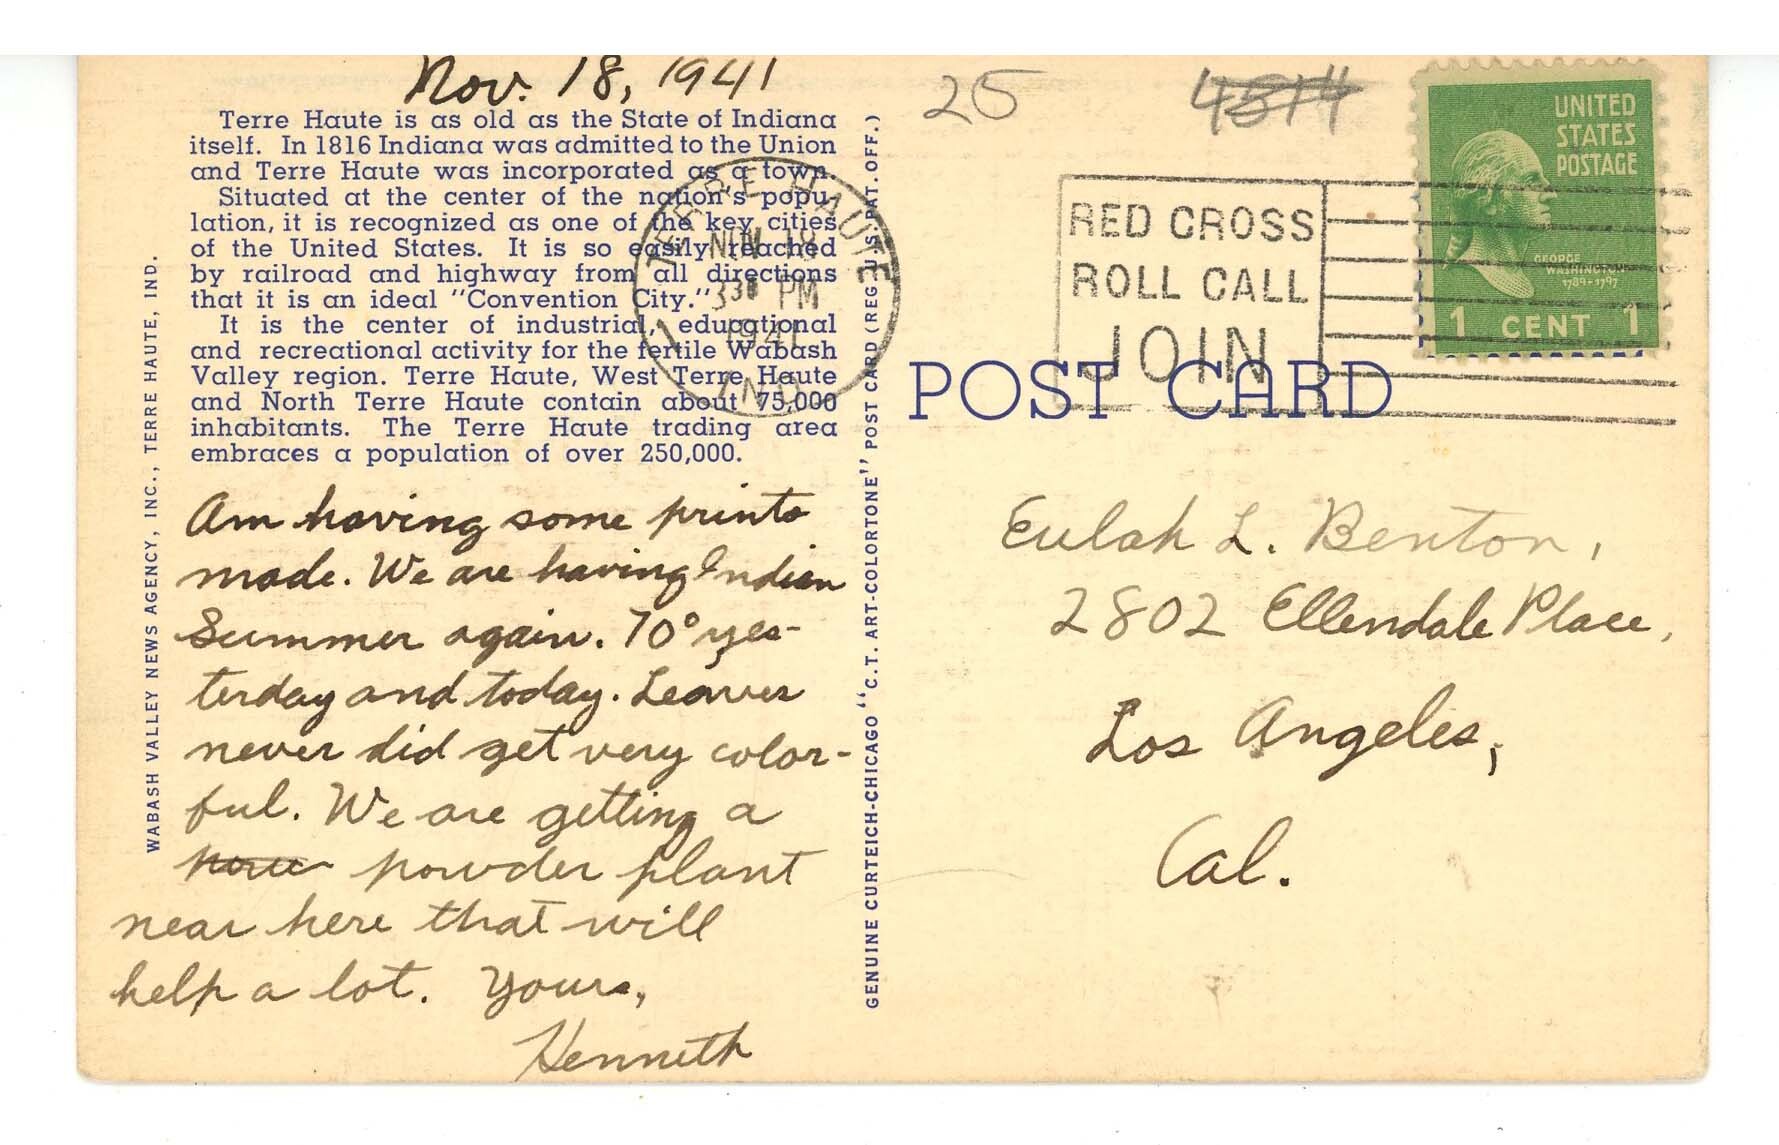 Nov. 18, 1941
Terre Haute is as old as the State of Indiana
itself. In 1816 Indiana was admitted to the Union
and Terre Haute was incorporated as a town.
Situated at the center of the nation's popu-
lation, it is recognized as one of the key cities
of the United States. It is so easily reached
by railroad and highway from all directions
that it is an ideal "Convention City."
It is the center of industrial, educational
and recreational activity for the fertile Wabash
Valley region. Terre Haute, West Terre Haute
and North Terre Haute contain about 75,000
inhabitants. The Terre Haute trading area
embraces a population of over 250,000.
Am having some prints
made. We are having Indian
Summer again. 70° yes-
terday and today. Leaves
never did get very color-
ful. We are getting a
powder plant
near here that will
help a lot. Yours,
Kenneth
WABASH VALLEY NEWS AGENCY, INC., TERRE HAUTE, IND.
GENUINE CURTEICH-CHICAGO "C.T. ART-COLORTONE" POST CARD (REG. U.S. PAT. OFF.)
TERRE HAUTE
NOV 18
330 PM
1941
IND.
1
25
4514
RED CROSS
ROLL CALL
JOIN
UNITED
STATES
POSTAGE
GEORGE
WASHINGTON
1789-1797
1 CENT 1
POST CARD
Eulah L. Benton,
2802 Ellendale Place,
Los Angeles,
Cal.